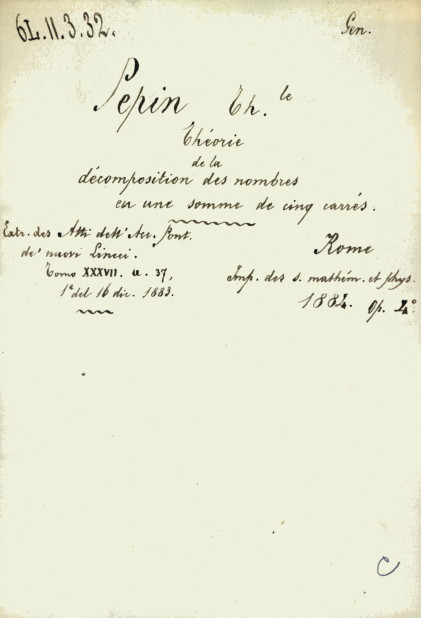 6L.11.3.32.
Gen.
Pepin Th.le
Théorie
de la
décomposition des nombres
en une somme de cinq carrés.
Extr. des Atti dell'Acc. Pont.
de' nuovi Lincei.
Tomo XXXVII. a. 37,
1a del 16 dic. 1883.
Rome
Imp. des s. mathém. et phys.
1884. Op. 4o.
C